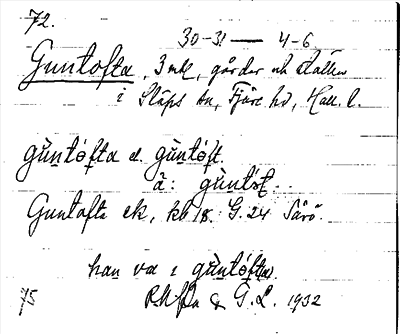 72.
30-31 — 4-6
Guntofta, 3 mtl, gårdar och ställen
i Släps sn, Fjäre hd, Hall. l.
gùntófta el. gùntóft.
ä: gùntóf. .
Guntofta ek, kb 18. G. 24 Särö.
han va i gùntófta.
75
&amp; G. L. 1932